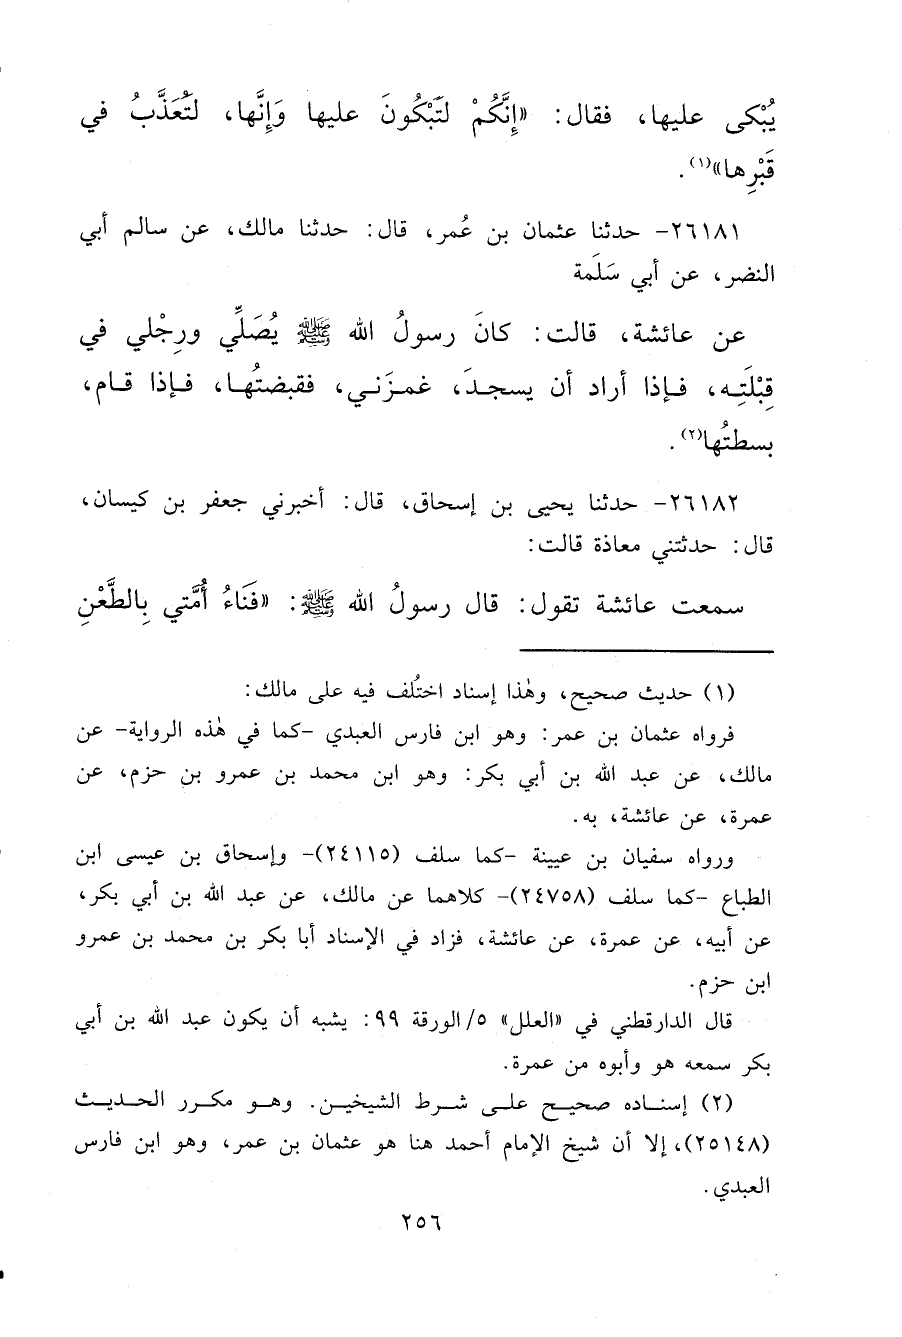 يُبْكى عليها، فقال: «إِنَّكُمْ لتَبْكُونَ عليها وَإِنَّها، لتُعَذَّبُ في
قَبْرِها»(١).
٢٦١٨١- حدثنا عثمان بن عُمر، قال: حدثنا مالك، عن سالم أبي
النضر، عن أبي سَلَمة
عن عائشة، قالت: كانَ رسولُ الله ﷺ يُصَلِّي ورِجْلي في
قِبْلَتِه، فإذا أراد أن يسجدَ، غمزَني، فقبضتُها، فإذا قام،
بسطتُها(٢).
٢٦١٨٢- حدثنا يحيى بن إسحاق، قال: أخبرني جعفر بن كيسان،
قال: حدثتني معاذة قالت:
سمعت عائشة تقول: قال رسولُ الله ﷺ: «فَنَاءُ أُمَّتي بِالطَّعْنِ
(١) حديث صحيح، وهٰذا إسناد اختُلف فيه على مالك:
فرواه عثمان بن عمر: وهو ابن فارس العبدي -كما في هٰذه الرواية- عن
مالك، عن عبد الله بن أبي بكر: وهو ابن محمد بن عمرو بن حزم، عن
عمرة، عن عائشة، به.
ورواه سفيان بن عيينة -كما سلف (٢٤١١٥)- وإسحاق بن عيسى ابن
الطباع -كما سلف (٢٤٧٥٨)- كلاهما عن مالك، عن عبد الله بن أبي بكر،
عن أبيه، عن عمرة، عن عائشة، فزاد في الإسناد أبا بكر بن محمد بن عمرو
ابن حزم.
قال الدارقطني في «العلل» ٥/ الورقة ٩٩: يشبه أن يكون عبد الله بن أبي
بكر سمعه هو وأبوه من عمرة.
(٢) إسناده صحيح على شرط الشيخين. وهو مكرر الحديث
(٢٥١٤٨)، إلا أن شيخ الإمام أحمد هنا هو عثمان بن عمر، وهو ابن فارس
العبدي.
٢٥٦